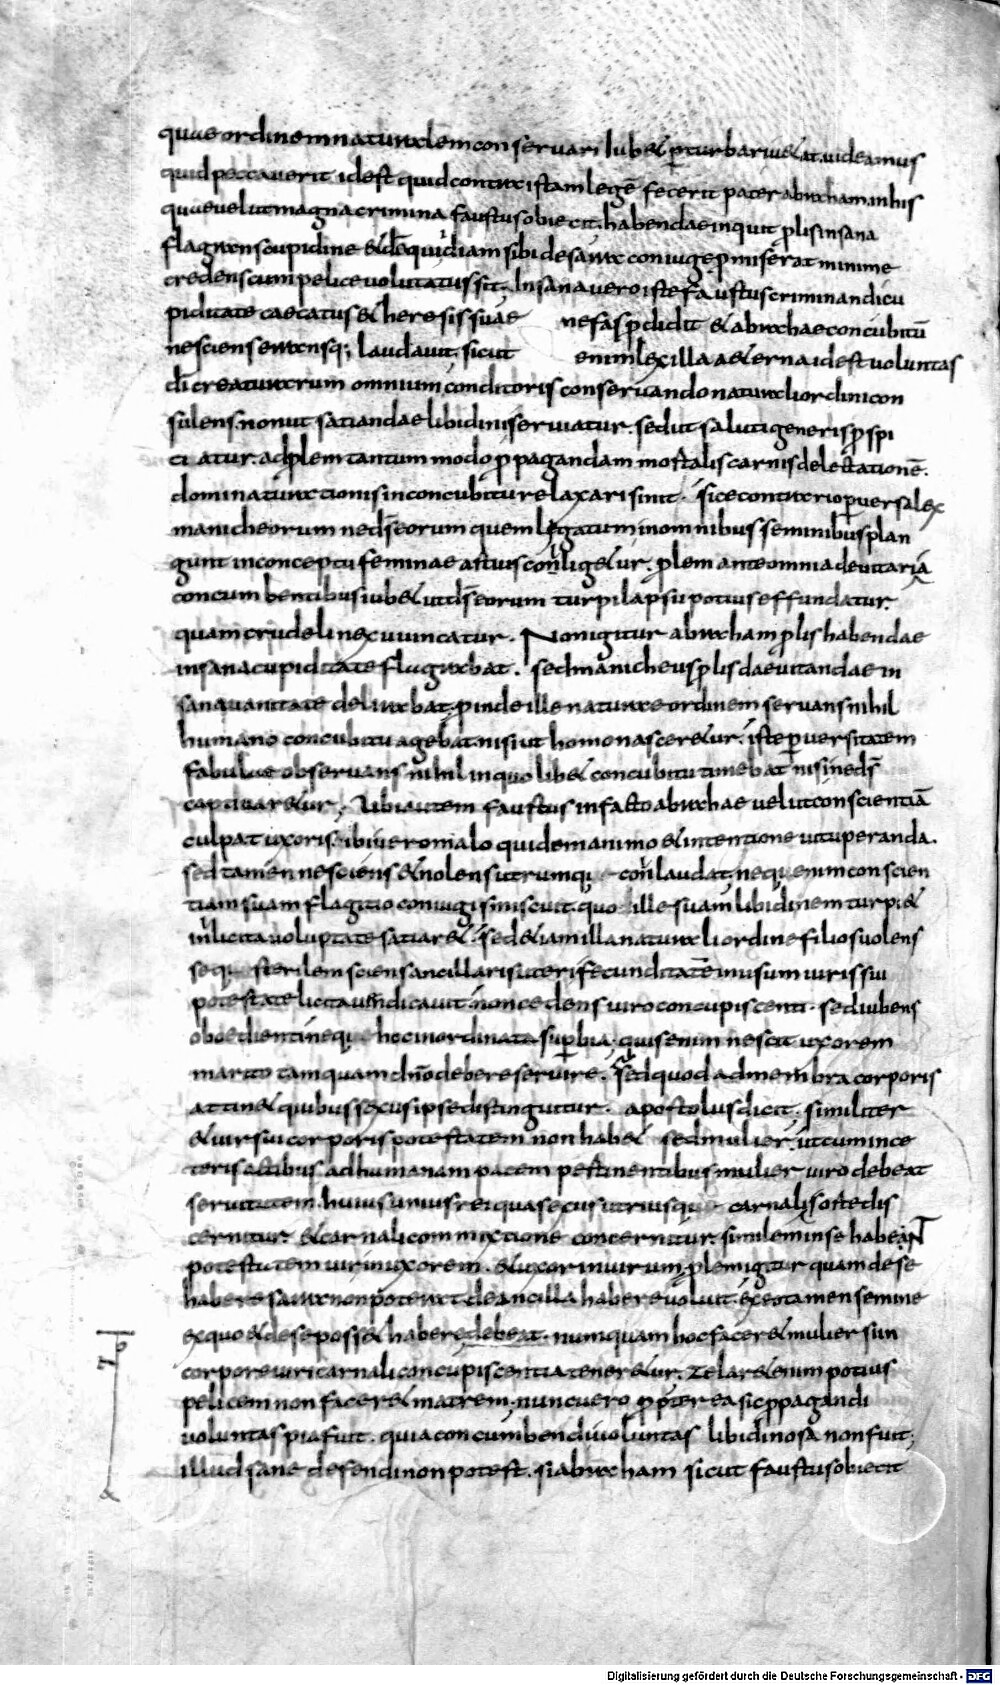 quae ordinem naturalem conservari iubet pturbarive&at. videamus
quid peccaverit id est quid contra istam legē fecerit pater abraham. in his
quae velut magna crimina faustus obiecit. habendae inquit plis insana
flagrans cupidine & dō qui id iam sibi de sarra coniuge pmiserat minime
credens cum pelice volutatus sit. Insana vero iste faustus criminandi cu
piditate caecatus & heresis suae nefas pdidit & abrahae concubitū
nesciens erransq; laudavit. sicut enim lex illa aeterna id est voluntas
dī creaturarum omnium conditoris conservando naturali ordini con
sulens. non ut satiandae libidini serviatur. sed ut saluti generis pspi
ciatur. ad plem tantum modo ppagandam mortalis carnis delectationē.
dominatu rationis in concubitu relaxari sinit. sic e contrario pversa lex
manicheorum ne dš eorum quem ligatum in omnibus seminibus plan
gunt in conceptu feminae artius conligetur. plem ante omnia devitari a
concumbentibus iub& ut dš eorum turpi lapsu potius effundatur.
quam crudeli nexu vinciatur. Non igitur abraham plis habendae
insana cupiditate flagrabat. sed manicheus plis devitandae in
sana vanitate delirabat. pinde ille naturae ordinem servans nihil
humano concubitu agebat. nisi ut homo nascer&ur. iste pversitatem
fabulae observans nihil in quolib& concubitu timebat nisi ne dš
captivar&ur; Ubi autem faustus in facto abrahae velut conscientiā
culpat uxoris. ibi vero malo quidem animo & intentione vituperanda.
sed tamen nesciens & nolens utrumque conlaudat. neque enim conscien
tiam suam flagitio coniugis miscuit. quo ille suam libidinem turpi &
inlicita voluptate satiar&. sed & iam illa naturali ordine filios volens
seque sterilem sciens ancillaris uteri fecunditatē in usum viri sui
potestate licita vindicavit. non cedens viro concupiscenti. sed iubens
oboedienti neque hoc inordinata supbia. quis enim nescit uxorem
marito tamquam dn̄o debere servire. sed quod ad membra corporis
attin& quibus sexus ipse distinguitur. apostolus dicit. similiter
& vir sui corporis potestatem non hab& sed mulier. ut cum in ce
teris actibus ad humanam pacem ptinentibus mulier viro debeat
servitutem. huius unius rei qua sexus utriusque carnalis sorte dis
cernitur. & carnali commixtione concernitur. similem in se habeant
potestatem vir in uxorem. & uxor in virum. plem igitur quam de se
habere sarra non poterat de ancilla habere voluit. ex eo tamen semine
ex quo & de se poss& habere debeat. numquam hoc facer& mulier si in
corpore viri carnali concupiscentia tener&ur. Zelar& enim potius
pelicem non facer& matrem. nunc vero ppterea sic ppagandi
voluntas pia fuit. quia concumbendi voluntas libidinosa non fuit;
illud sane defendi non potest. si abraham sicut faustus obiecit